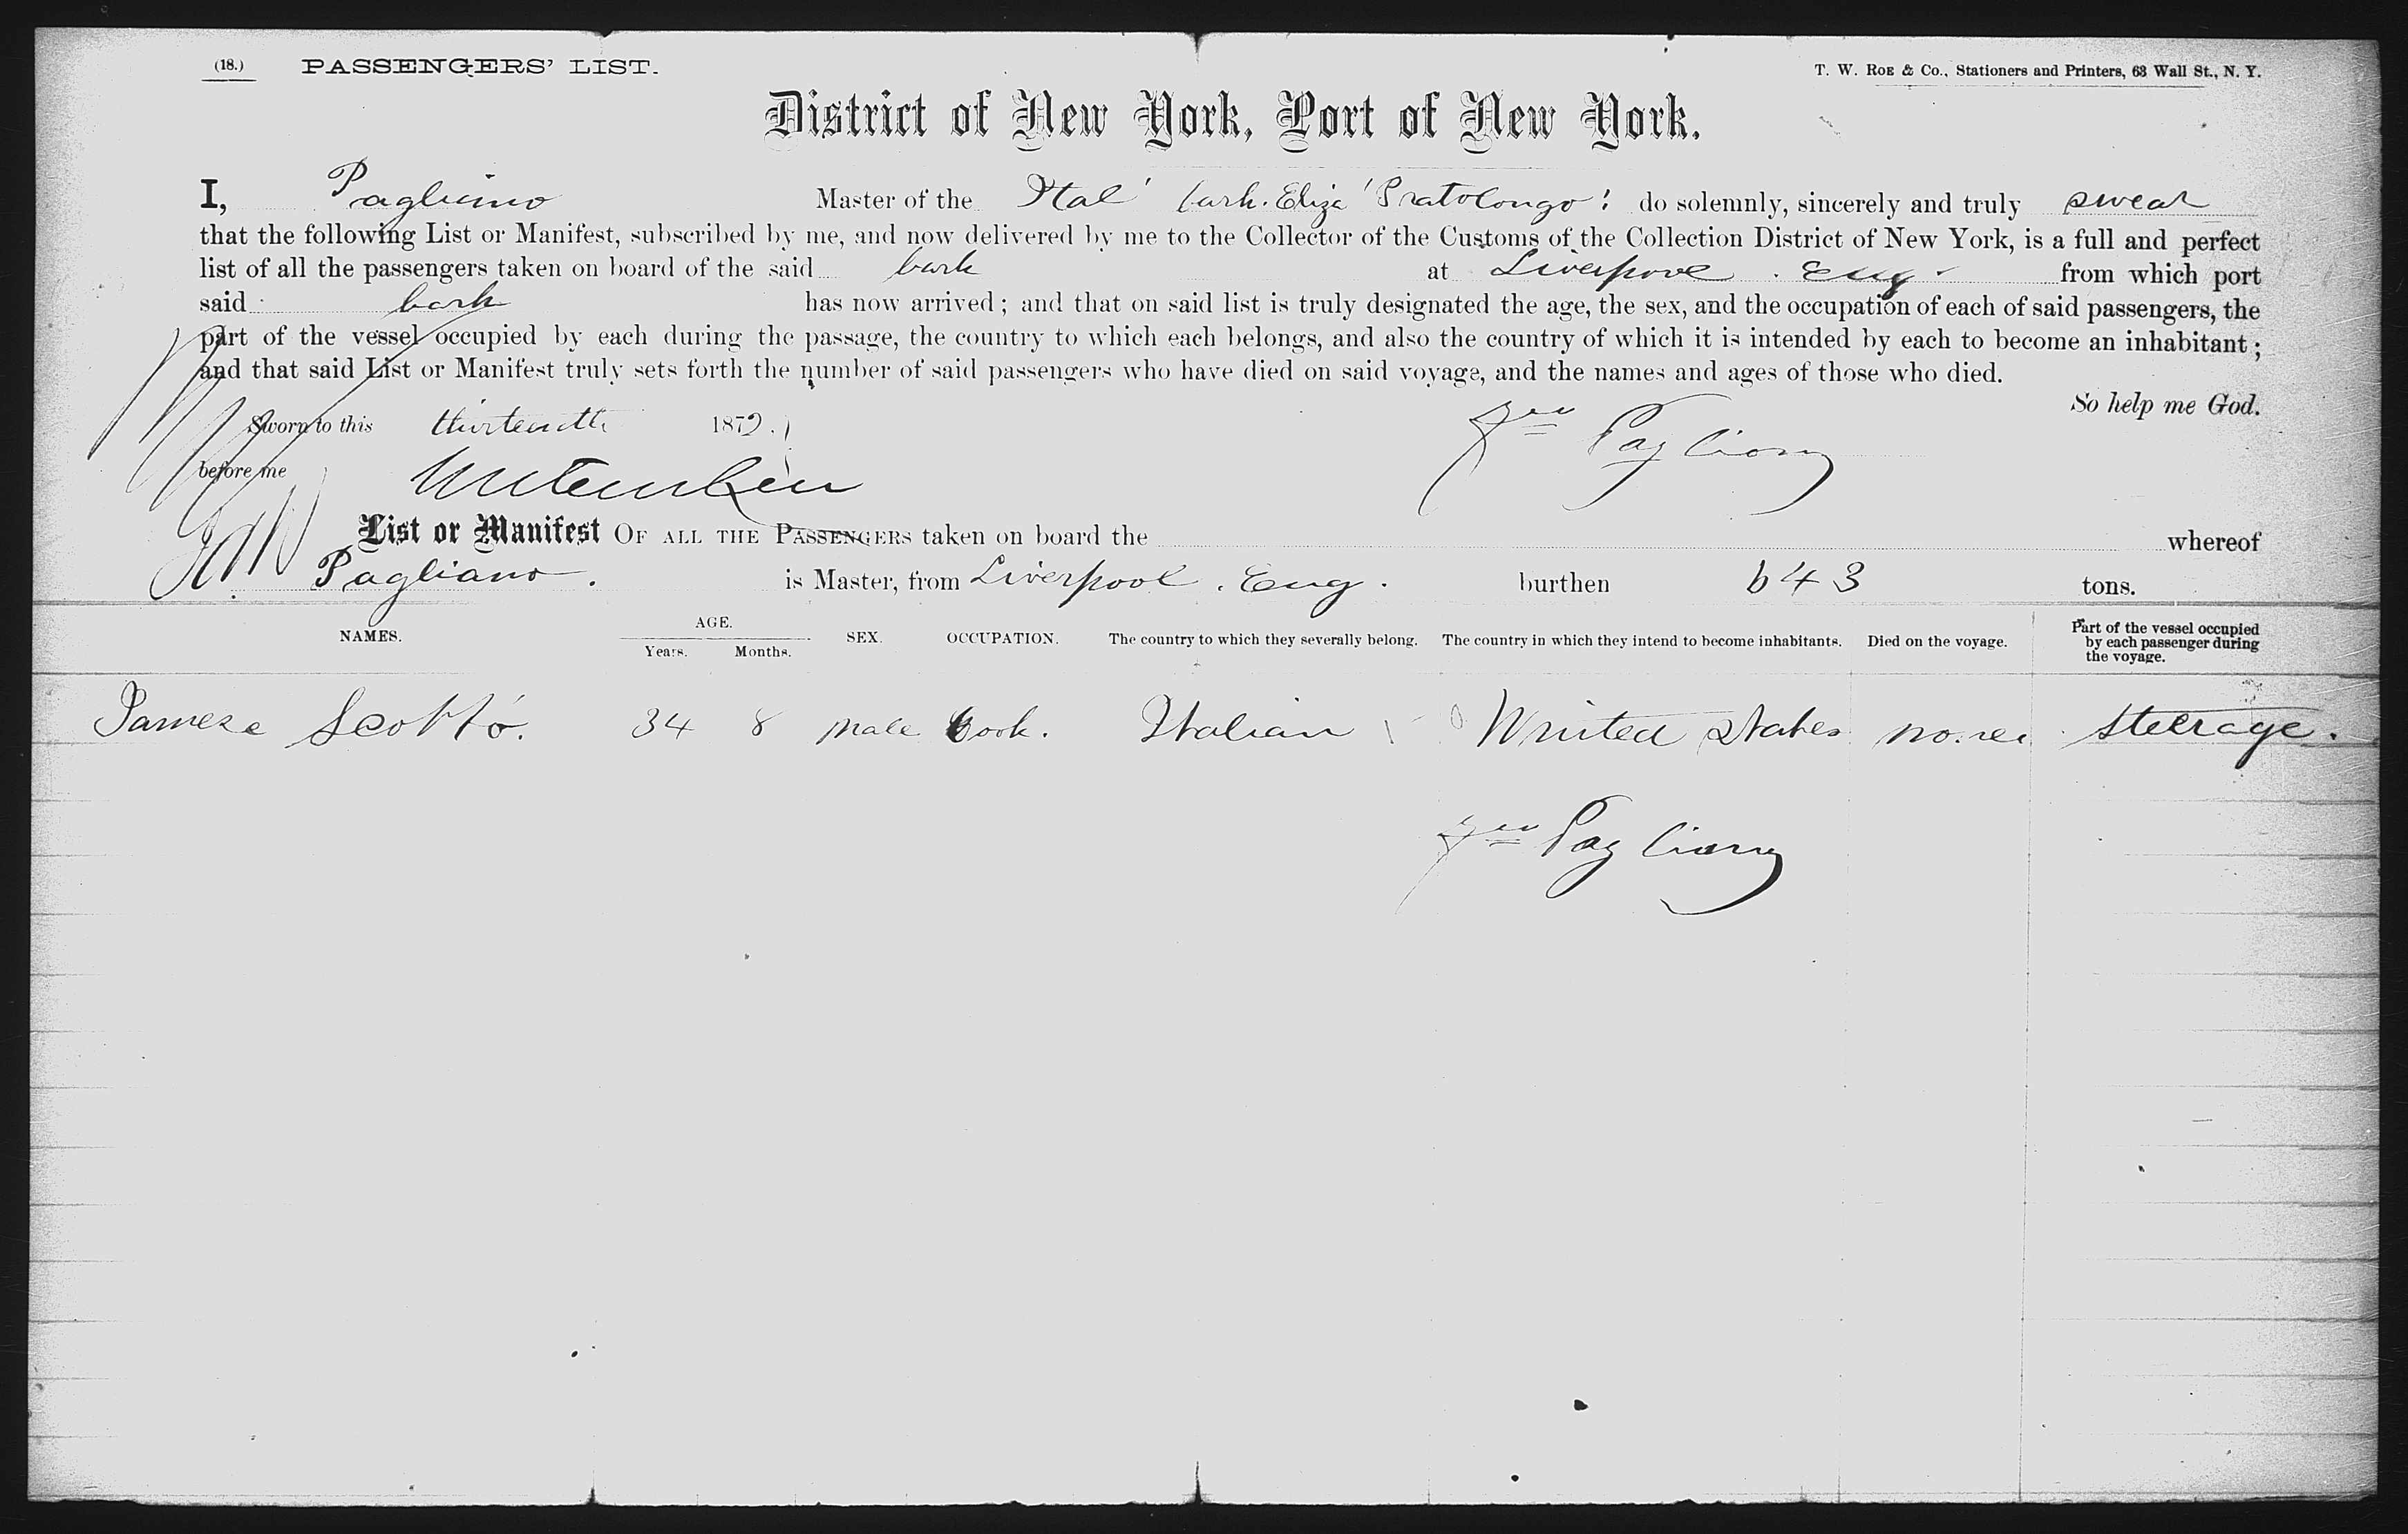 (18.) PASSENGERS' LIST. T. W. ROE & Co., Stationers and Printers, 63 Wall St., N. Y.
District of New York, Port of New York.
I, Pagliano Master of the Ital' bark. Eliza 'Pratolongo' do solemnly, sincerely and truly swear
that the following List or Manifest, subscribed by me, and now delivered by me to the Collector of the Customs of the Collection District of New York, is a full and perfect
list of all the passengers taken on board of the said bark at Liverpool. Eng. from which port
said bark has now arrived; and that on said list is truly designated the age, the sex, and the occupation of each of said passengers, the
part of the vessel occupied by each during the passage, the country to which each belongs, and also the country of which it is intended by each to become an inhabitant;
and that said List or Manifest truly sets forth the number of said passengers who have died on said voyage, and the names and ages of those who died.
So help me God.
Sworn to this thirteenth 1879.
before me
List or Manifest OF ALL THE PASSENGERS taken on board the whereof
Pagliano. is Master, from Liverpool. Eng. burthen 643 tons.
NAMES. AGE. Years. Months. SEX. OCCUPATION. The country to which they severally belong. The country in which they intend to become inhabitants. Died on the voyage. Part of the vessel occupied by each passenger during the voyage.
Scotto. 34 8 male Cook. Italian United States none steerage.